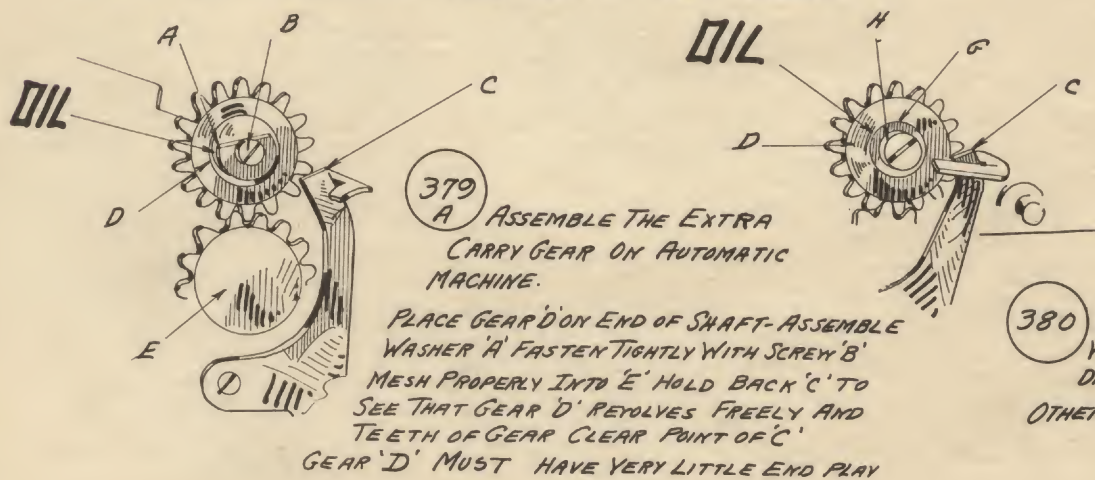 A
B
OIL
C
D
E
379
A
ASSEMBLE THE EXTRA
CARRY GEAR ON AUTOMATIC
MACHINE.
PLACE GEAR 'D' ON END OF SHAFT-ASSEMBLE
WASHER 'A' FASTEN TIGHTLY WITH SCREW 'B'
MESH PROPERLY INTO 'E' HOLD BACK 'C' TO
SEE THAT GEAR 'D' REVOLVES FREELY AND
TEETH OF GEAR CLEAR POINT OF 'C'
GEAR 'D' MUST HAVE VERY LITTLE END PLAY
OIL
H
G
C
D
380
OTHER